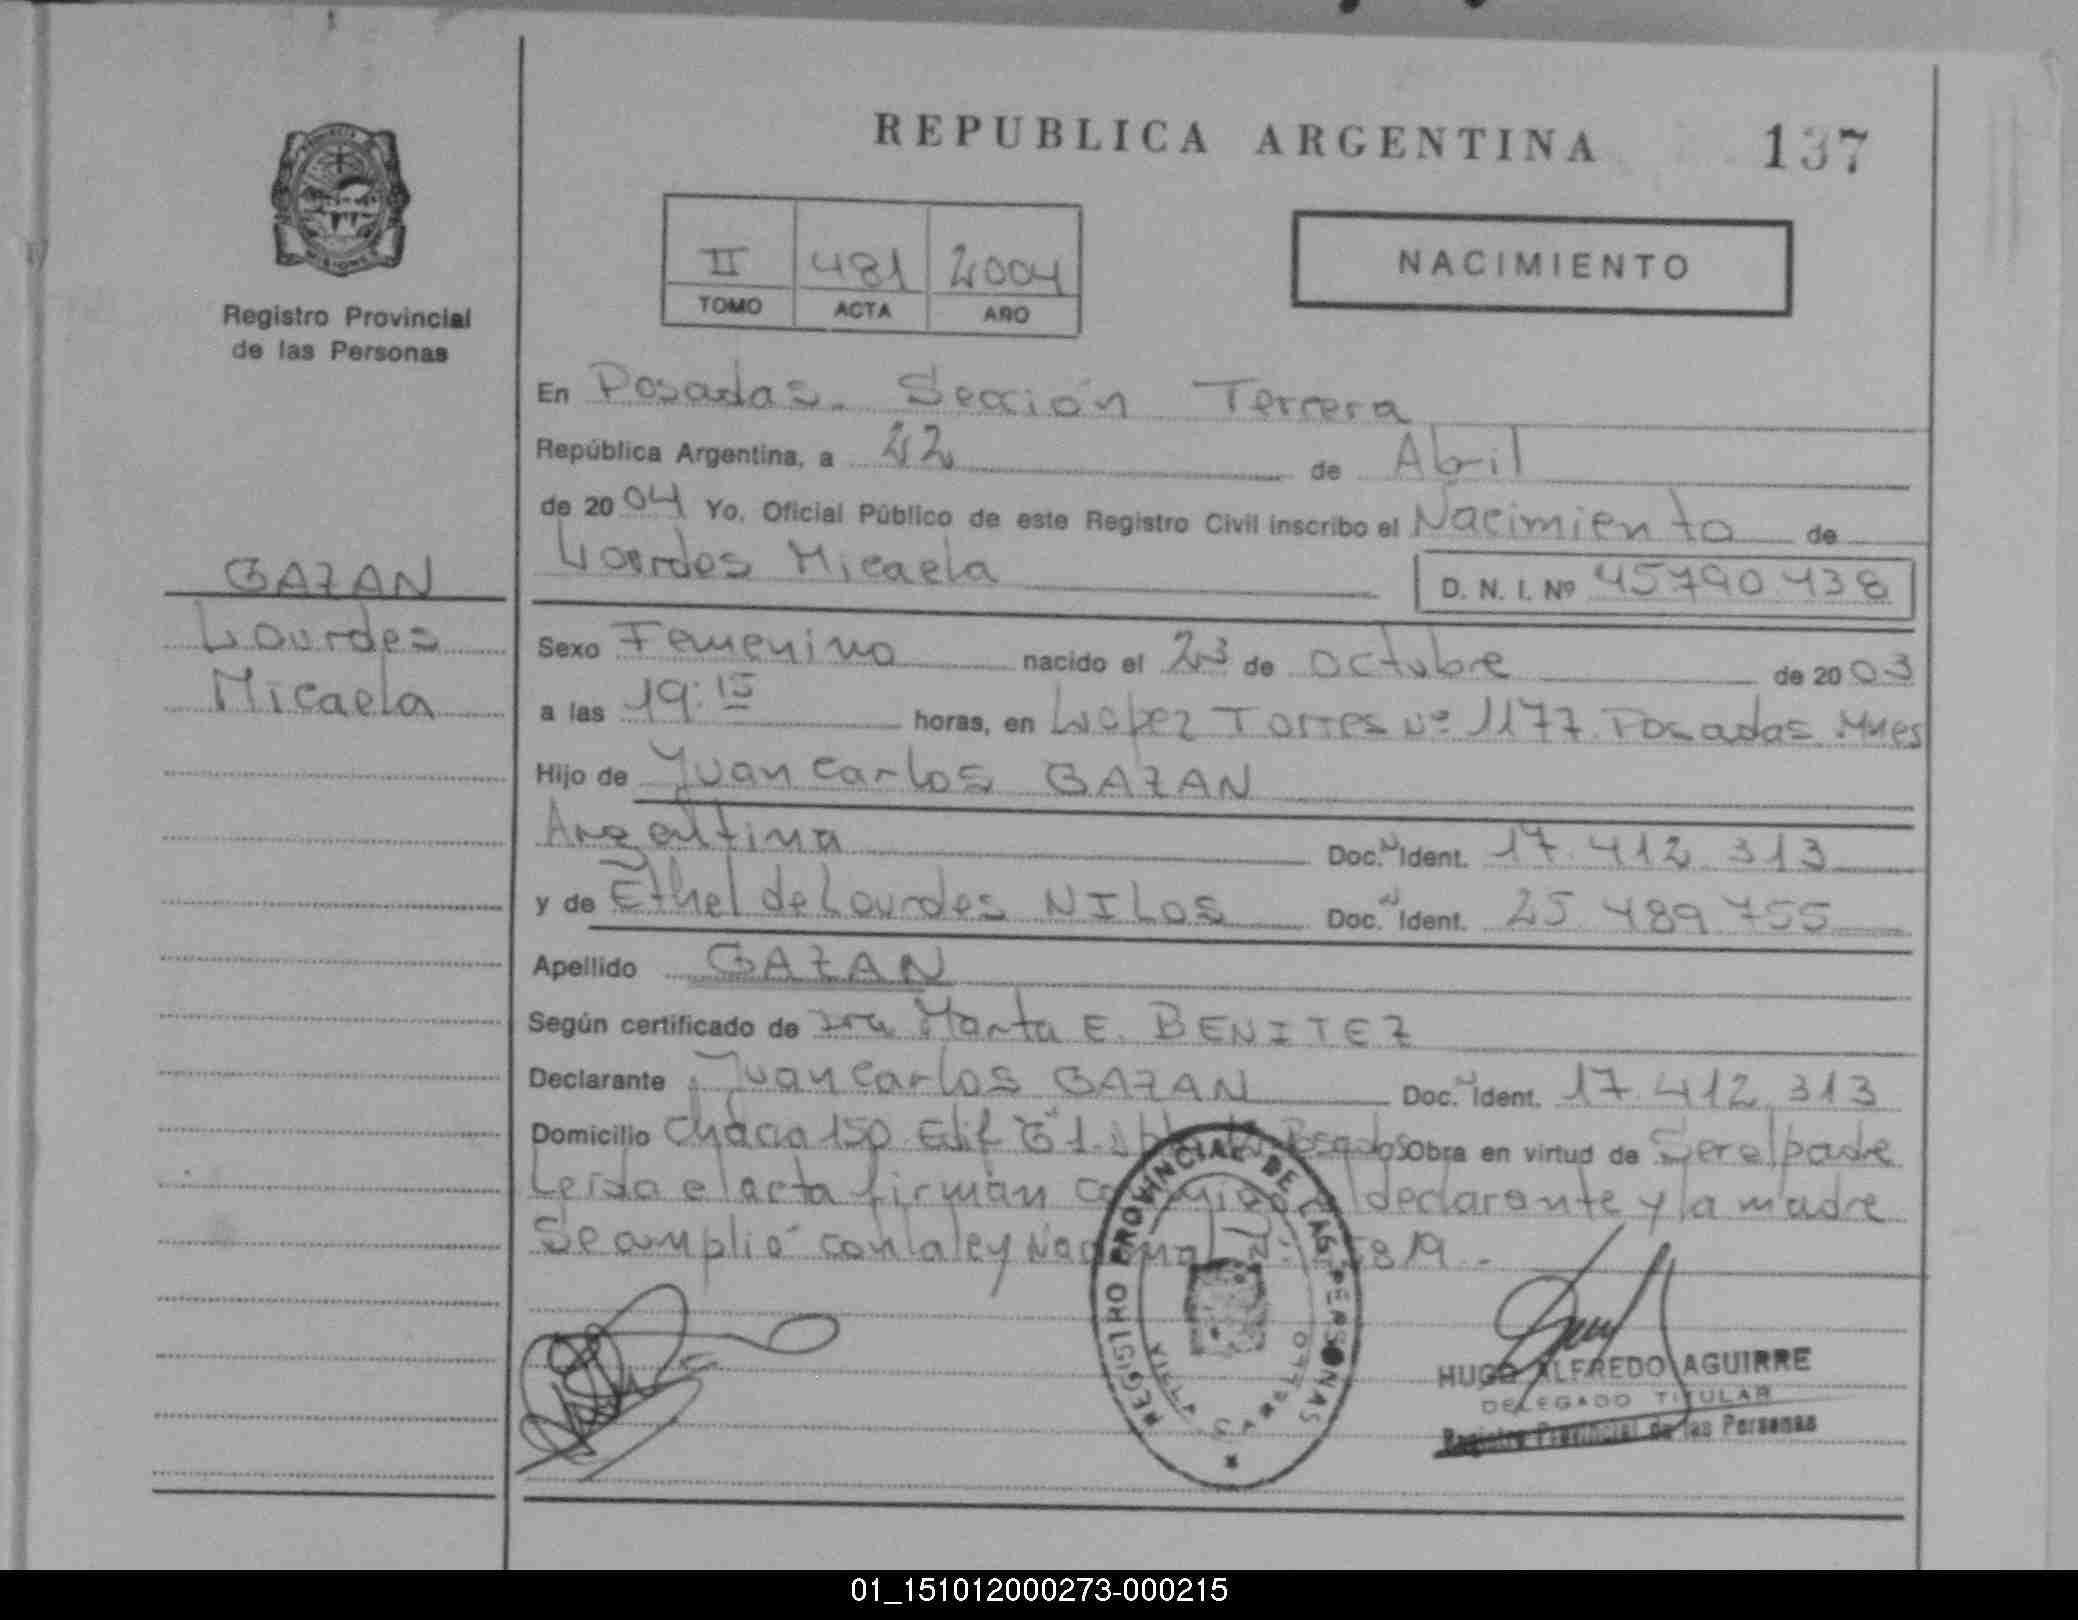 REPUBLICA ARGENTINA
137
PROVINCIA
MISIONES
Registro Provincial
de las Personas
II 481 2004
TOMO ACTA AÑO
NACIMIENTO
En Posadas. Sección Tercera
República Argentina, a 22 de Abril
de 2004 Yo, Oficial Público de este Registro Civil inscribo el Nacimiento de
Lourdes Micaela D. N. I. Nº 45790.438
GAZAN
Lourdes
Micaela
Sexo Femenino nacido el 23 de octubre de 2003
a las 19:15 horas, en López Torres Nº 1177. Posadas. Mnes
Hijo de Juan Carlos GAZAN
Argentina Doc. Ident. 17.412.313
y de Ethel de Lourdes NILOS Doc. Ident. 25.489.755
Apellido GAZAN
Según certificado de Dra Marta E. BENITEZ
Declarante Juan Carlos GAZAN Doc. Ident. 17.412.313
Domicilio Chacra 150 Edif G 1. Posadas Obra en virtud de Ser el padre
Leída el acta firman declarante y la madre
Se amplió con la ley Nacional
REGISTRO PROVINCIAL DE LAS PERSONAS
HUGO ALFREDO AGUIRRE
DELEGADO TITULAR
Registro Provincial de las Personas
01_151012000273-000215